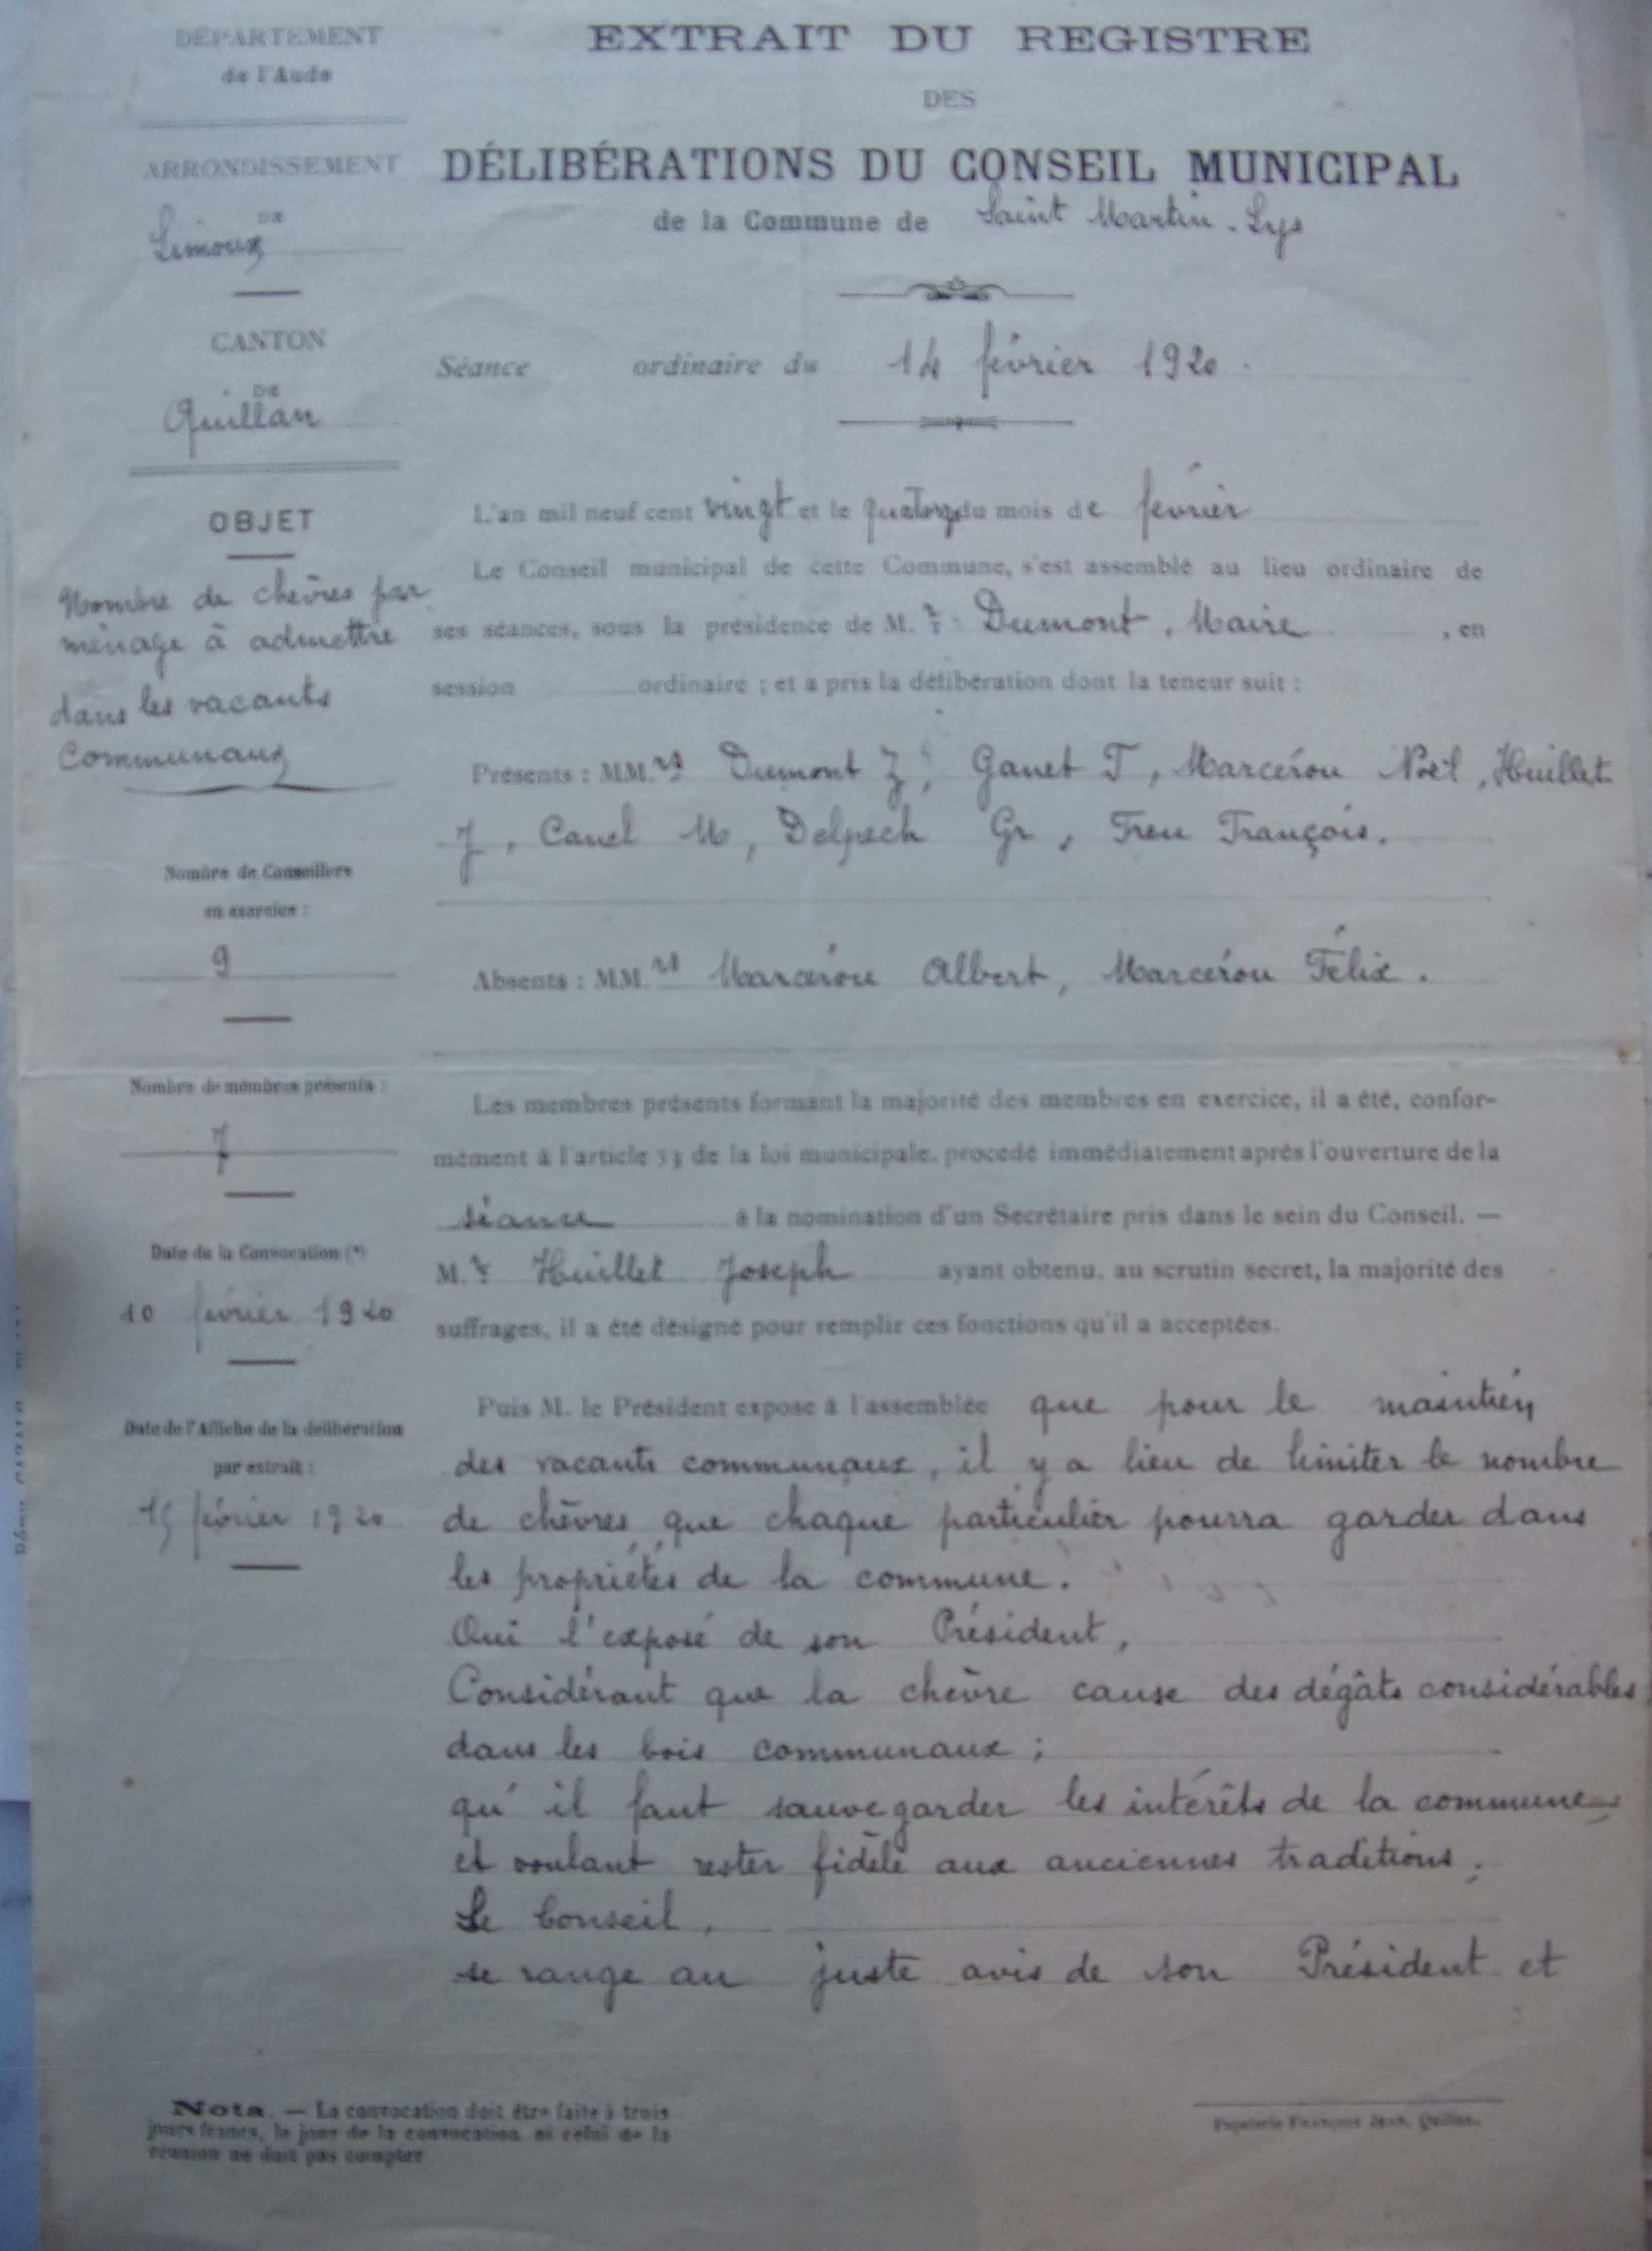 DÉPARTEMENT
de l'Aude
ARRONDISSEMENT
DE
Limoux
CANTON
DE
Quillan
OBJET
Nombre de chèvres par
ménage à admettre
dans les vacants
Communaux
Nombre de Conseillers
en exercice :
9
Nombre de membres présents :
7
Date de la Convocation (*)
10 février 1920
Date de l'Affiche de la délibération
par extrait :
15 février 1920
EXTRAIT DU REGISTRE
DES
DÉLIBÉRATIONS DU CONSEIL MUNICIPAL
de la Commune de Saint Martin-Lys
Séance ordinaire du 14 février 1920.
L'an mil neuf cent vingt et le quatorze du mois de février
Le Conseil municipal de cette Commune, s'est assemblé au lieu ordinaire de
ses séances, sous la présidence de M.r Dumont, Maire , en
session ordinaire ; et a pris la délibération dont la teneur suit :
Présents : MM.rs Dumont J, Ganet T, Marcérou Noël, Huillet
J, Canel M, Delpech Gr, Freu François.
Absents : MM.rs Marcérou Albert, Marcérou Félix.
Les membres présents formant la majorité des membres en exercice, il a été, confor-
mément à l'article 53 de la loi municipale, procédé immédiatement après l'ouverture de la
séance à la nomination d'un Secrétaire pris dans le sein du Conseil. —
M.r Huillet Joseph ayant obtenu, au scrutin secret, la majorité des
suffrages, il a été désigné pour remplir ces fonctions qu'il a acceptées.
Puis M. le Président expose à l'assemblée que pour le maintien
des vacants communaux, il y a lieu de limiter le nombre
de chèvres que chaque particulier pourra garder dans
les propriétés de la commune.
Oui l'exposé de son Président,
Considérant que la chèvre cause des dégâts considérables
dans les bois communaux ;
qu'il faut sauvegarder les intérêts de la commune
et voulant rester fidèle aux anciennes traditions ;
Le Conseil,
se range au juste avis de son Président et
Nota. — La convocation doit être faite à trois
jours francs, le jour de la convocation ni celui de la
réunion ne doit pas compter
Papeterie François Jean, Quillan.